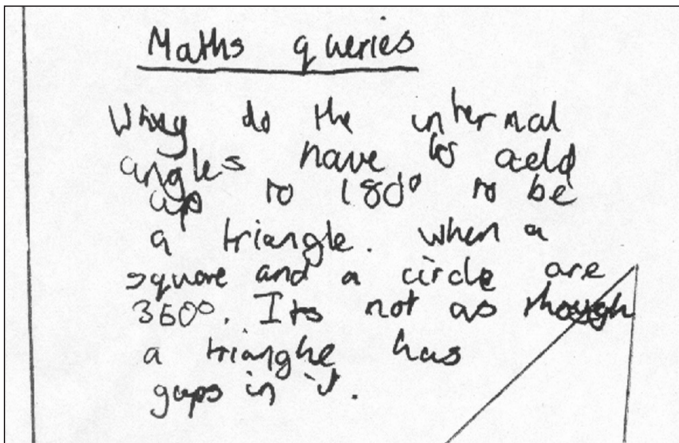 Maths queries
Why do the internal
angles have to add
up to 180° to be
a triangle. When a
square and a circle are
360°. Its not as though
a trianghe has
gaps in it.